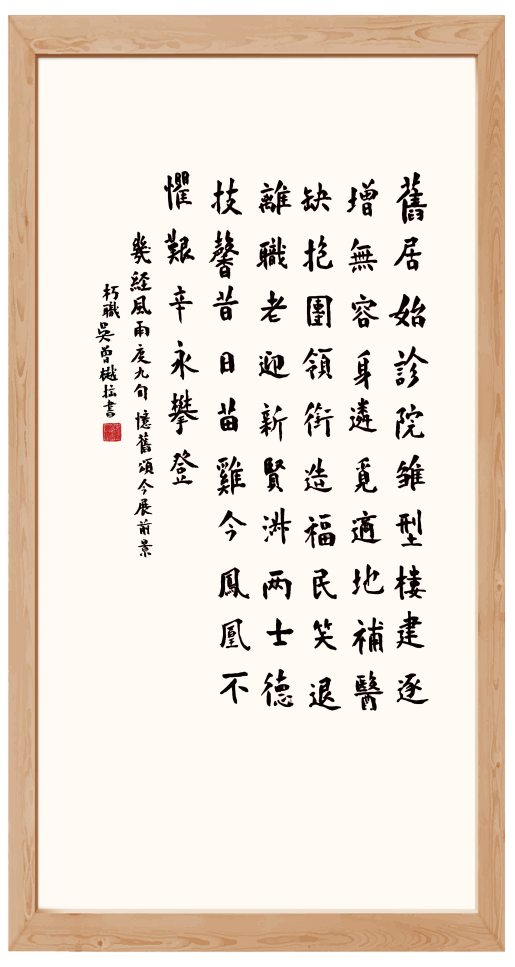 舊居始診院雏型樓建逐
增無容身遴覓適地補醫
缺抱團領銜造福民笑退
離職老迎新賢洪兩士德
技馨昔日苗雞今鳳凰不
懼艱辛永攀登
幾經風雨度九旬憶舊頌今展前景
朽職吳曾樾